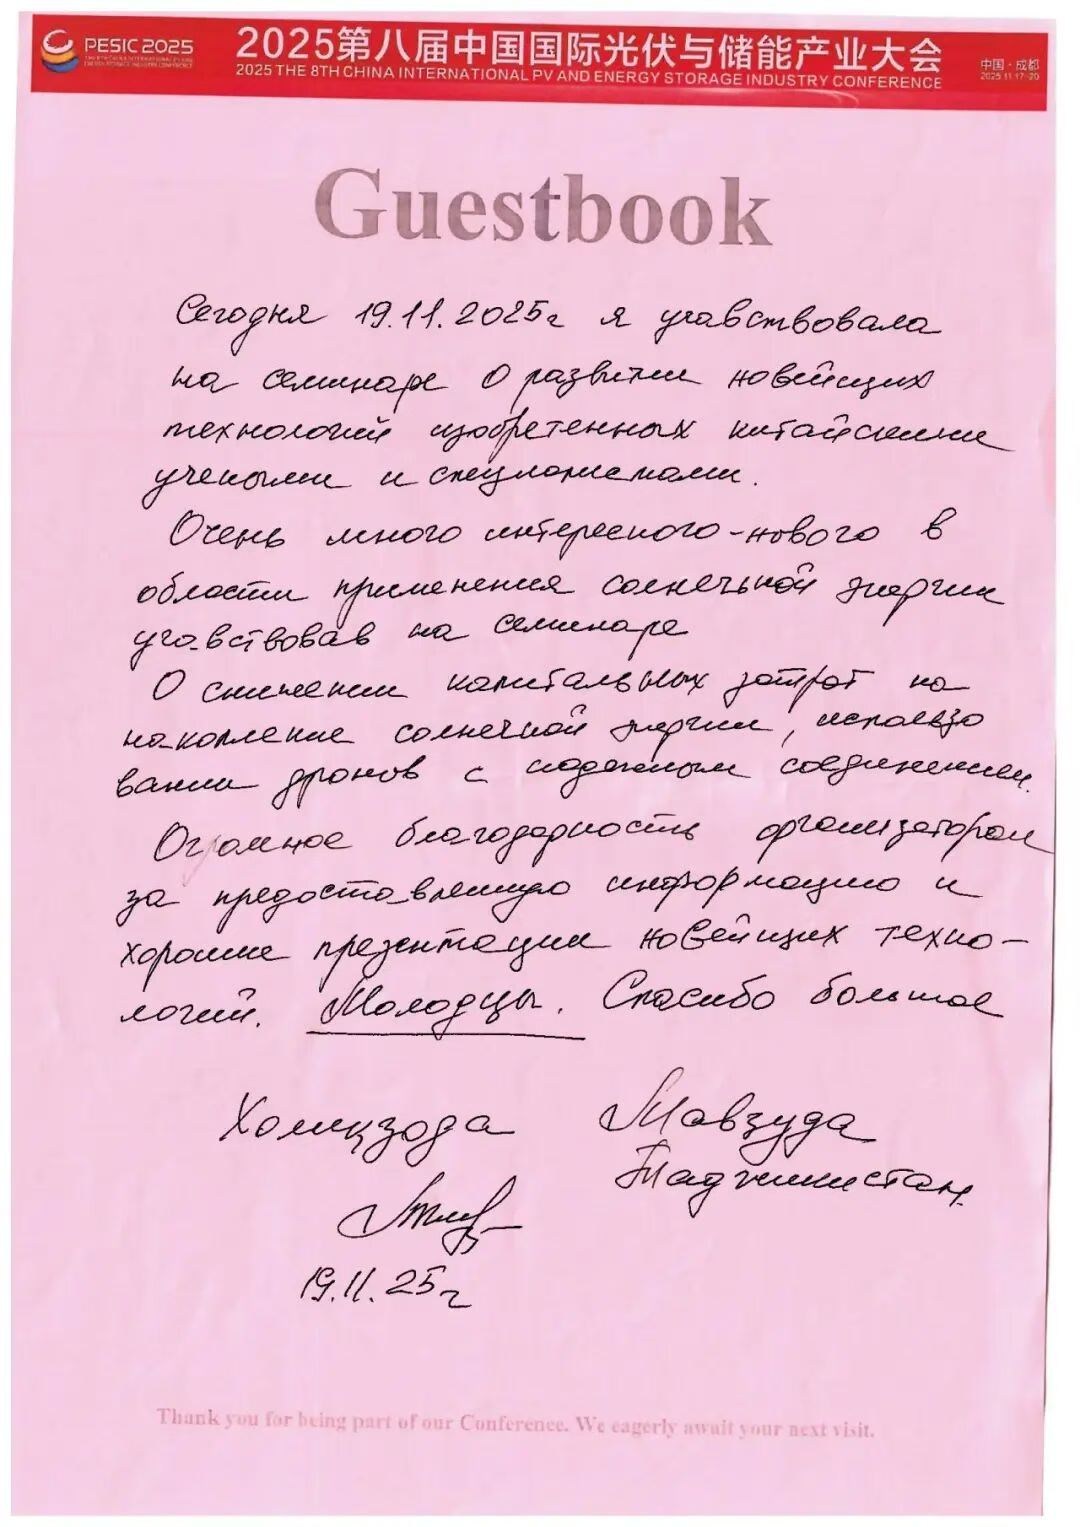 PESIC 2025
THE 8TH CHINA INTERNATIONAL PV AND
ENERGY STORAGE INDUSTRY CONFERENCE
2025第八届中国国际光伏与储能产业大会
2025 THE 8TH CHINA INTERNATIONAL PV AND ENERGY STORAGE INDUSTRY CONFERENCE
中国·成都
2025.11.17-20
Guestbook
Сегодня 19.11.2025г я учавствовала
на семинаре о развитии новейших
технологий изобретенных китайскими
учеными и специалистами.
Очень много интересного-нового в
области применения солнечной энергии
учавствовав на семинаре
О снижении капитальных затрат на
накопление солнечной энергии, использо
вании дронов с надежным соединением.
Огромное благодарность организаторам
за предоставленную информацию и
хорошие презентации новейших техно-
логий. Молодцы. Спасибо большое
Холикзода Мавзуда
Таджикистан
19.11.25г
Thank you for being part of our Conference. We eagerly await your next visit.